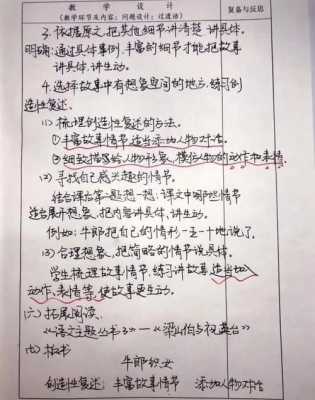 教 学 设 计
(教学环节及内容；问题设计；过渡语)
复备与反思
3. 依据原文,把其他细节讲清楚 讲具体。
明确:通过具体事例,丰富的细节才能把故事
讲具体,讲生动。
4. 选择故事中有想象空间的地方,练习创
造性复述。
(1) 梳理创造性复述的方法。
①丰富故事情节 适当添加人物对话
②细致描绘人物形象 模仿人物的动作和表情
(2) 寻找自己感兴趣的情节。
结合课后第二题想一想:课文中哪些情节
适合展开想象,把内容讲具体,讲生动。
例如:牛郎把自己的情形一五一十地说了。
(3) 合理想象,把简略的情节说具体。
学生梳理故事情节,练习讲故事,适当加入
动作、表情等,使故事更生动。
(六) 拓展阅读
《语文主题丛书》—《梁山伯与祝英台》
(七) 板书
牛郎织女
创造性复述: 丰富故事情节 添加人物对话